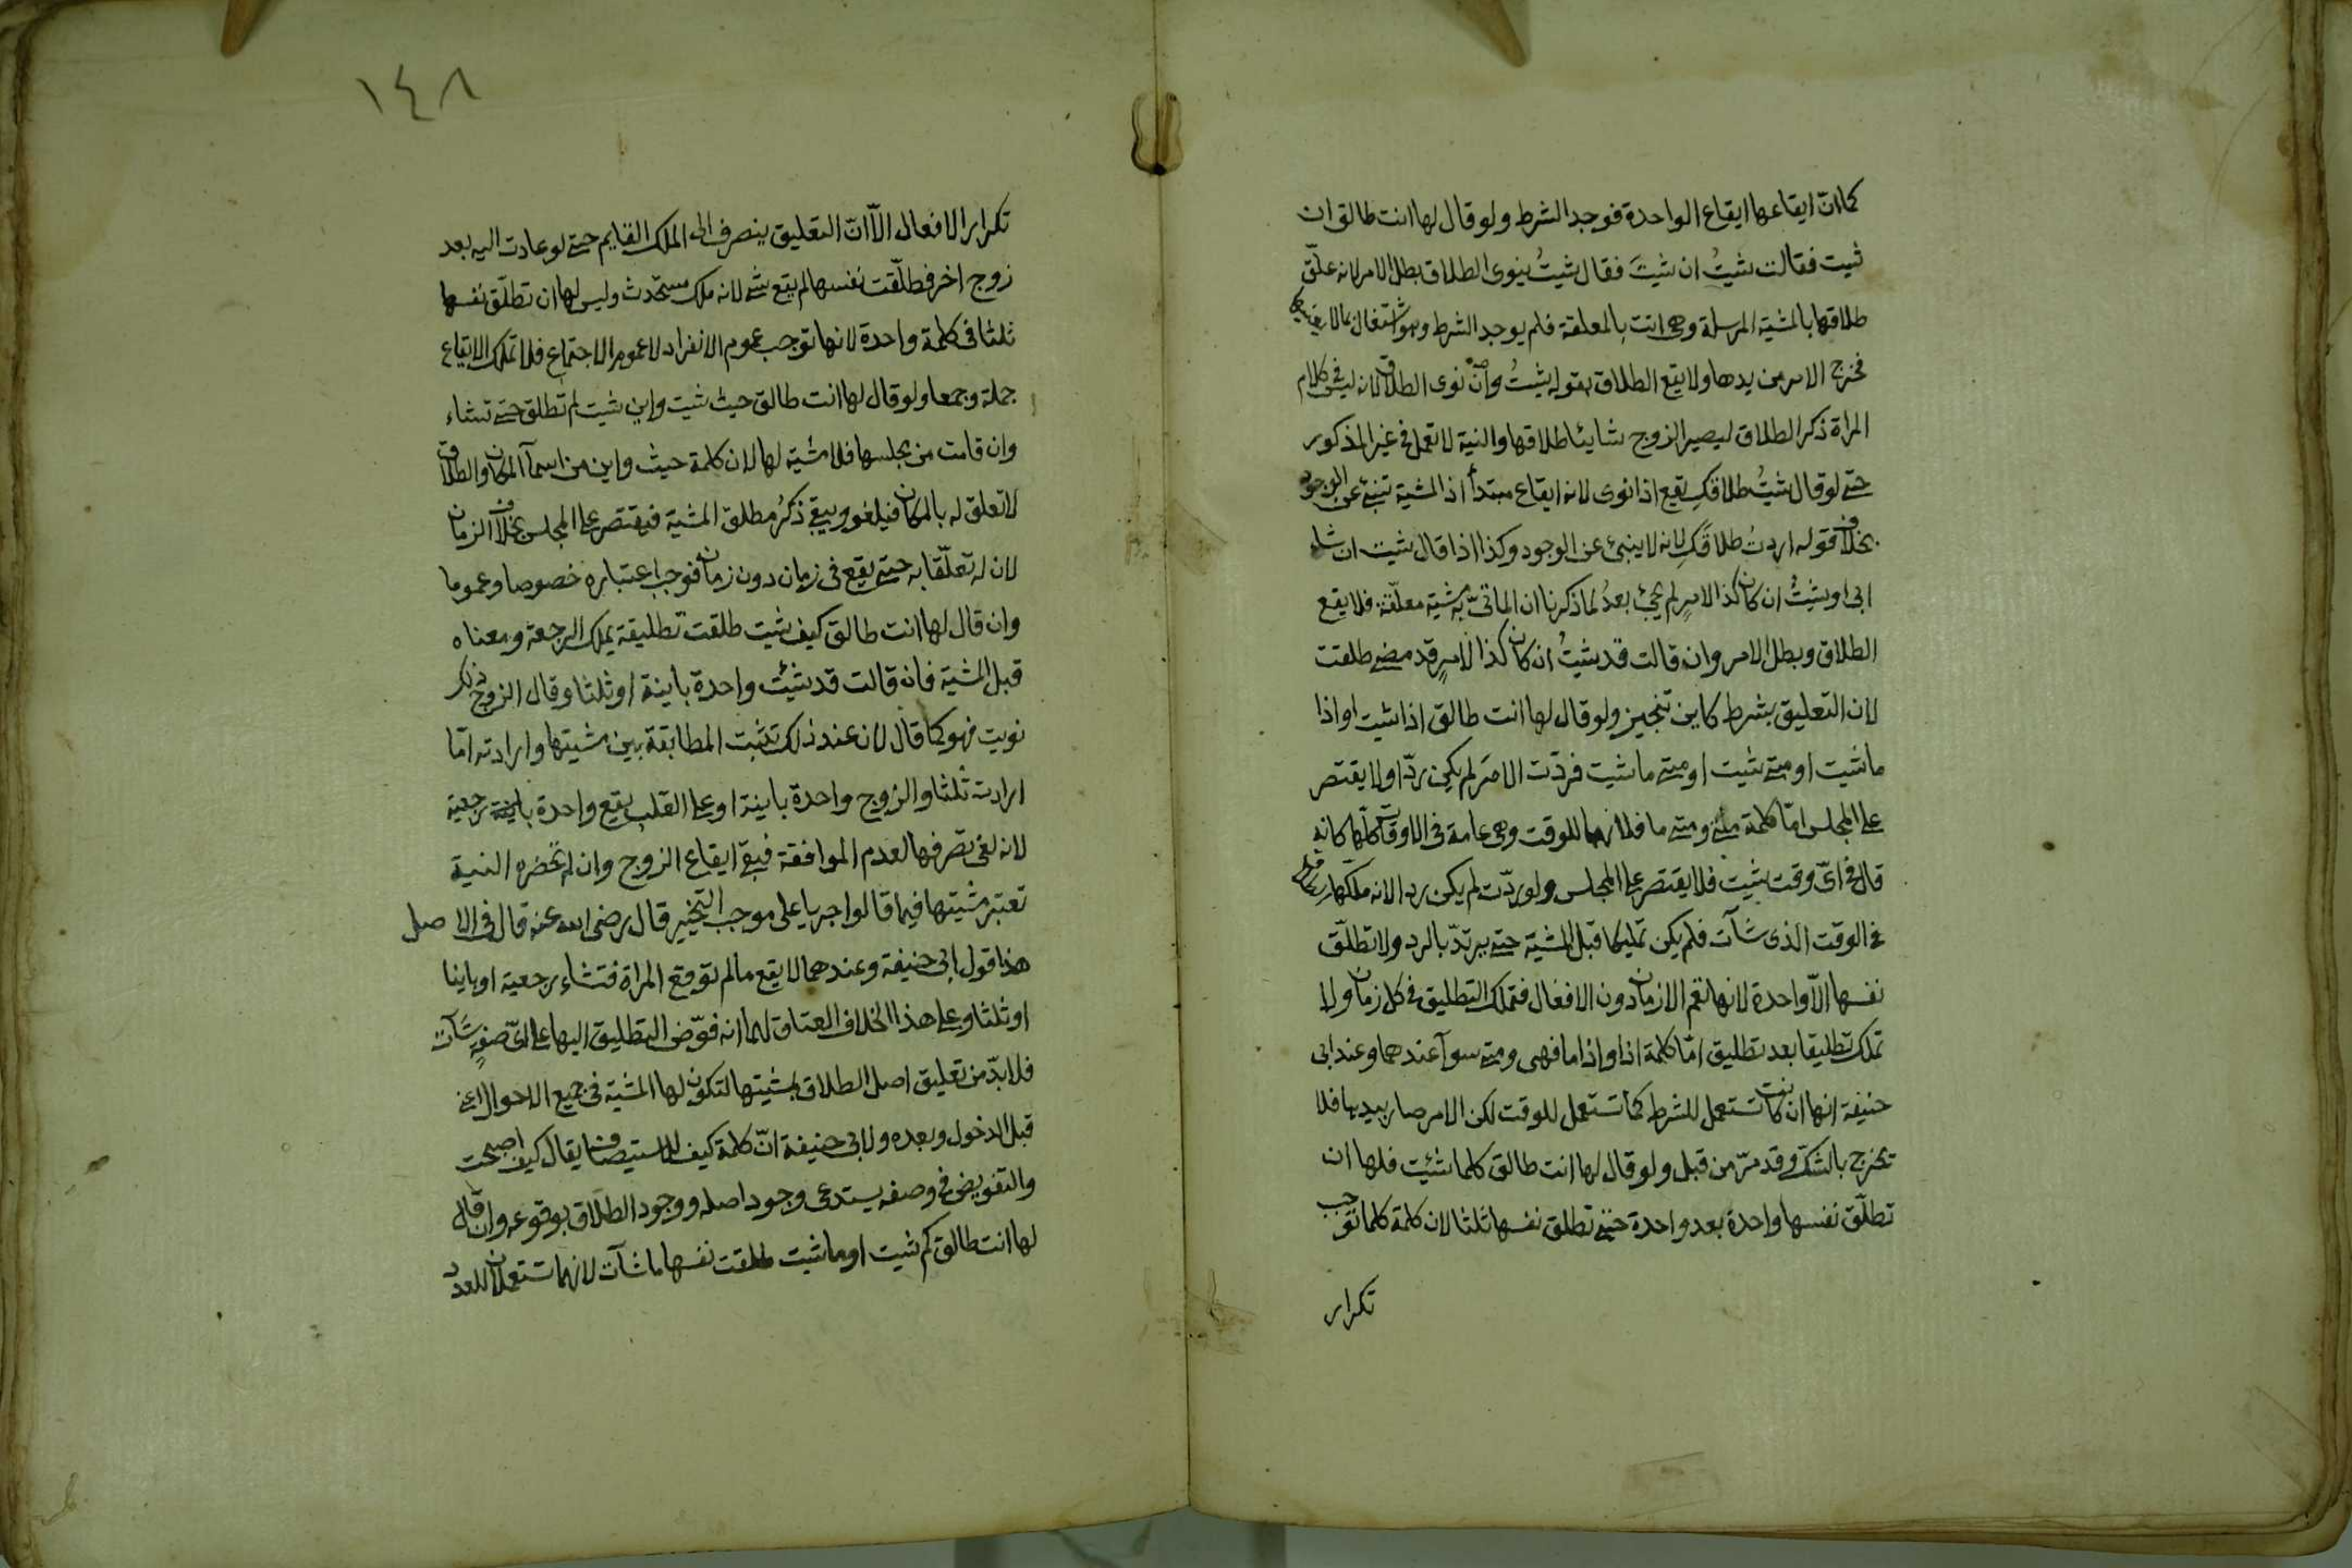 كما انّ ايقاعها ايقاع الواحدة فوجد الشرط ولو قال لها انت طالق ان
شيت فقالت شيتُ ان شيتَ فقال شيتُ ينوى الطلاق بطل الامر لانه علّق
طلاقها بالمشية المرسلة وهى اتت بالمعلقة فلم يوجد الشرط وهو اشتغال بما لا يعنيها
فخرج الامر من يدها ولا يقع الطلاق بقوله شيتُ وان نوى الطلاق لانه ليس فى كلام
المراة ذكر الطلاق ليصير الزوج شايئا طلاقها والنية لا تعمل فى غير المذكور
حتى لو قال شيتُ طلاقكِ يقع اذا نوى لانه ايقاع مبتدأ اذ المشية تنبئ عن الوجود
بخلاف قوله اردتُ طلاقكِ لانه لا ينبئ عن الوجود وكذا اذا قال شيت ان شاء
ابى او شيتُ ان كان كذا لامرٍ لم يجئ بعدُ لما ذكرنا ان الماتىّ به مشية معلّقة فلا يقع
الطلاق وبطل الامر وان قالت قد شيتُ ان كان كذا لامرٍ قد مضى طلقت
لان التعليق بشرط كاين تنجيز ولو قال لها انت طالق اذا شيت او اذا
ما شيت او متى شيت او متى ما شيت فردّت الامرَ لم يكن ردّا ولا يقتصر
على المجلس امّا كلمة متى ومتى ما فلانهما للوقت وهى عامة فى الاوقات كلّها كانه
قال فى اىّ وقت شيت فلا يقتصر على المجلس ولو ردّت لم يكن ردا لانه ملّكها
فى الوقت الذى شآت فلم يكن تمليكا قبل المشية حتى يرتدّ بالرد ولا تطلّق
نفسها الاّ واحدة لانها تعم الازمان دون الافعال فتملك التطليق فى كل زمان ولا
تملك تطليقا بعد تطليق امّا كلمة اذا واذا ما فهى ومتى سوآ عندهما وعند ابى
حنيفة انها ان كانت تستعمل للشرط كما تستعمل للوقت لكن الامر صار بيدها فلا
تخرج بالشكّ وقد مرّ من قبل ولو قال لها انت طالق كلما شئت فلها ان
تطلّق نفسها واحدة بعد واحدة حتى تطلق نفسها ثلثا لان كلمة كلما توجب
تكرار
١٤٨
تكرار الافعال الاّ انّ التعليق ينصرف الى الملك القايم حتى لو عادت اليه بعد
زوج اخر فطلّقت نفسها لم يقع شئ لانه ملك مستحدث وليس لها ان تطلّق نفسها
ثلثا فى كلمة واحدة لانها توجب عموم الانفراد لا عموم الاجتماع فلا تملك الايقاع
جملة وجمعا ولو قال لها انت طالق حيث شيت واين شيت لم تطلق حتى تشاء
وان قامت من مجلسها فلا مشية لها لان كلمة حيث واين من اسمآ المكان والطلاق
لا تعلق له بالمكان فيلغو ويبقى ذكرُ مطلق المشية فيقتصر على المجلس بخلاف الزمان
لان له تعلّقا به حتى يقع فى زمان دون زمان فوجب اعتباره خصوصا وعموما
وان قال لها انت طالق كيف شيت طلقت تطليقة يملك الرجعة ومعناه
قبل المشية فان قالت قد شيئت واحدة باينة او ثلثا وقال الزوج ذلك
نويت فهو كما قال لان عند ذلك تثبت المطابقة بين مشيتها وارادته امّا
ارادت ثلثا والزوج واحدة باينة او على القلب يقع واحدة باينة رجعية
لانه لغى تصرفها لعدم الموافقة فبقى ايقاع الزوج وان لم تحضره النية
تعتبر مشيتها فيما قالوا جريا على موجب التخيير قال رضى الله عنه قال فى الاصل
هذا قول ابى حنيفة وعندهما لا يقع ما لم توقع المراة فتشاء رجعية او باينا
او ثلثا وعلى هذا الخلاف العتاق لهما انه فوّض التطليق اليها على اىّ صفةٍ شآت
فلا بدّ من تعليق اصل الطلاق بمشيتها لتكون لها المشية فى جميع الاحوال اعنى
قبل الدخول وبعده ولابى حنيفة انّ كلمة كيف للاستيصاف يقال كيف اصبحت
والتفويض فى وصفه يستدعى وجود اصله ووجود الطلاق بوقوعه وان قال
لها انت طالق كم شيت او ما شيت طلقت نفسها ما شآت لانهما تستعملان للعدد